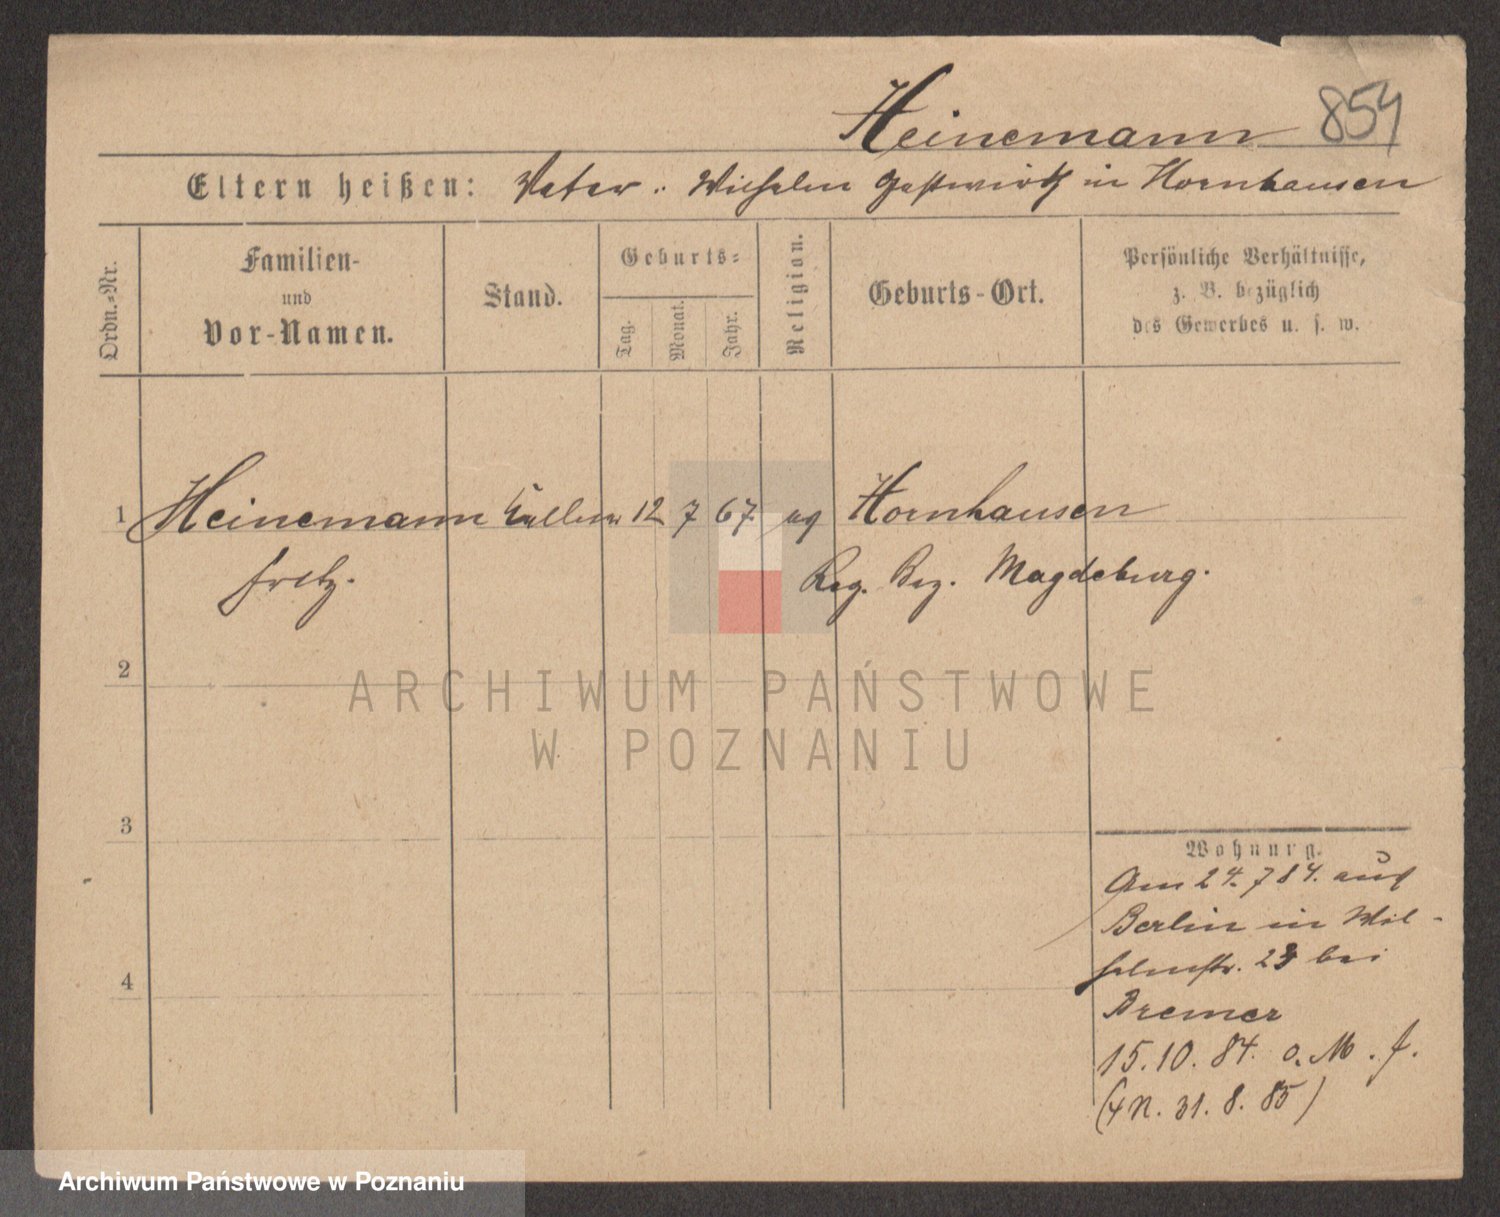 Heinemann 854
Eltern heißen: Vater: Wilhelm Gastwirth in Hornhausen
Ordn.-Nr.
Familien-
und
Vor-Namen.
Stand.
Geburts-
Tag.
Monat.
Jahr.
Religion.
Geburts-Ort.
Persönliche Verhältnisse,
z. B. bezüglich
des Gewerbes u. s. w.
1 Heinemann Kellner 12 7 67 ev Hornhausen
Fritz. Reg. Bez. Magdeburg.
2
ARCHIWUM PAŃSTWOWE
W POZNANIU
3
Wohnung.
Am 24. 7 84. aus
Berlin in Wil-
helmstr. 23 bei
4
Bremer
15. 10. 84. o. M. f.
31. 8. 85)
Archiwum Państwowe w Poznaniu